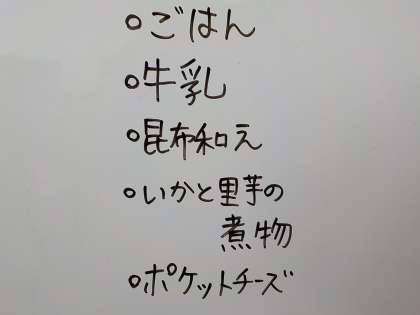 ○ごはん
○牛乳
○昆布和え
○いかと里芋の
煮物
○ポケットチーズ